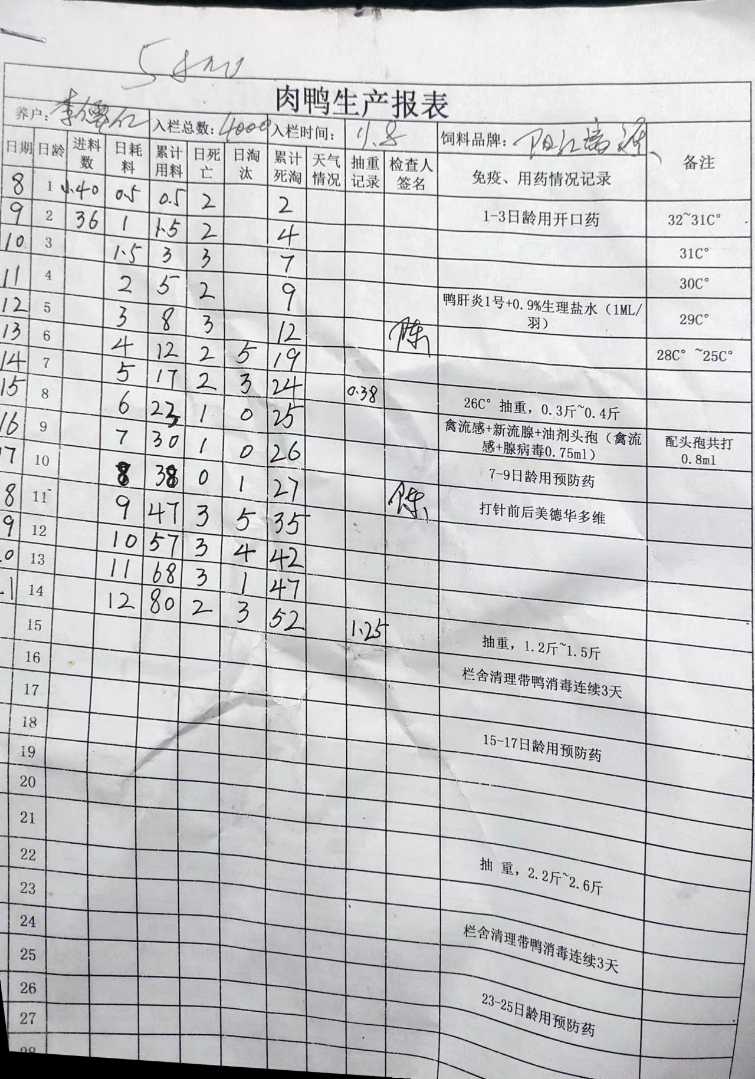 肉鸭生产报表
养户: 李 仁 入栏总数: 4000 入栏时间: 11.8 饲料品牌: 阳江
日期 日龄 进料数 日耗料 累计用料 日死亡 日淘汰 累计死淘 天气情况 抽重记录 检查人签名 免疫、用药情况记录 备注
8 1 40 0.5 0.5 2 2
9 2 36 1 1.5 2 4 1-3日龄用开口药 32~31C°
10 3 1.5 3 3 7 31C°
11 4 2 5 2 9 30C°
12 5 3 8 3 12 陈 鸭肝炎1号+0.9%生理盐水(1ML/羽) 29C°
13 6 4 12 2 5 19 28C° ~25C°
14 7 5 17 2 3 24 0.38
15 8 6 23 1 0 25 26C° 抽重, 0.3斤~0.4斤
16 9 7 30 1 0 26 禽流感+新流腺+油剂头孢(禽流感+腺病毒0.75ml) 配头孢共打0.8ml
17 10 8 38 0 1 27 7-9日龄用预防药
8 11 9 47 3 5 35 陈 打针前后美德华多维
9 12 10 57 3 4 42
0 13 11 68 3 1 47
1 14 12 80 2 3 52 1.25
15 抽重, 1.2斤~1.5斤
16 栏舍清理带鸭消毒连续3天
17
18 15-17日龄用预防药
19
20
21
22 抽 重, 2.2斤~2.6斤
23
24 栏舍清理带鸭消毒连续3天
25
26 23-25日龄用预防药
27
28